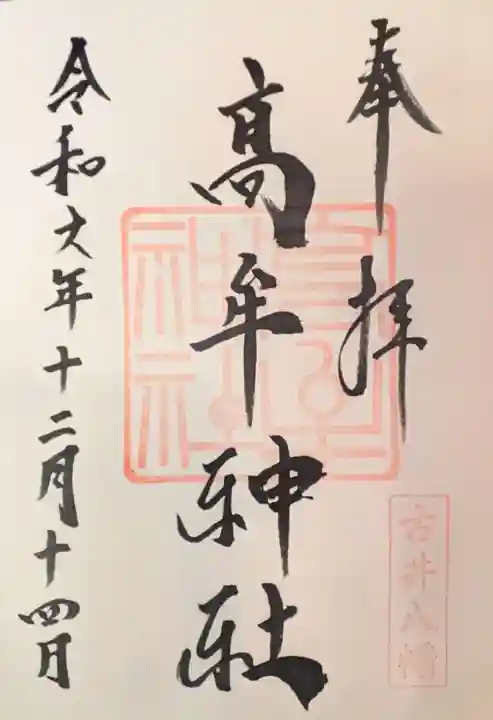 奉拝
高牟神社
古井八幡
令和六年十二月十四日